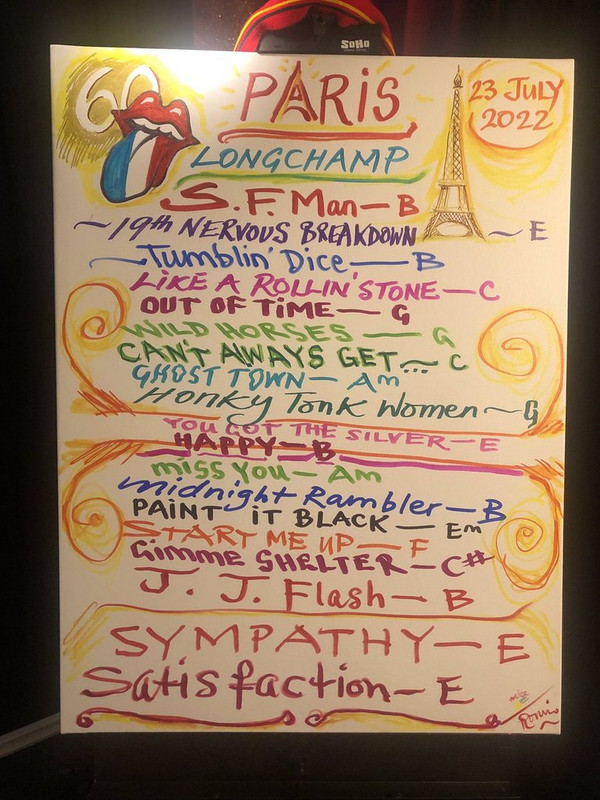 SoHo
60
PARiS
23 JULY
2022
LONGCHAMP
S.F. Man — B
~19th NERVOUS BREAKDOWN ~ E
Tumblin' Dice — B
LIKE A ROLLIN' STONE — C
OUT OF TiME — G
WILD HORSES — G
CAN'T AWAYS GET... ~ C
GHOST TOWN — Am
Honky Tonk Women ~ G
YOU GOT THE SILVER — E
HAPPY — B
MISS YOU — Am
Midnight Rambler — B
PAINT iT BLACK — Em
START ME UP — F
GiMME SHELTER — C#
J. J. Flash — B
SYMPATHY — E
Satisfaction — E
Ronnie